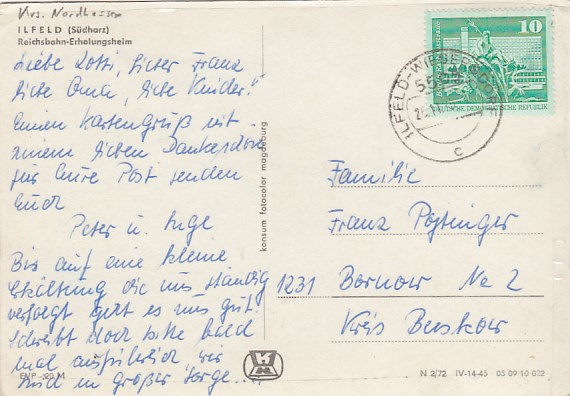 Krs. Nordhausen
ILFELD (Südharz)
Reichsbahn-Erholungsheim
Liebe Lotti, lieber Franz
liebe Oma, liebe Kinder!
Einen Kartengruß mit
einem lieben Dankeschön
für Eure Post senden
Euch
Peter u. Inge
Bis auf eine kleine
Erkältung die uns ständig
verfolgt geht es uns gut.
Schreibt doch bitte bald
mal ausführlich wir
sind in großer Sorge...
EVP -,20 M
konsum fotocolor magdeburg
10
DEUTSCHE DEMOKRATISCHE REPUBLIK
ILFELD-WIEGERSDORF
c
Familie
Franz
1231 Bornow Nr 2
Kreis Beeskow
N 2/72 IV-14-45 05 09 10 022